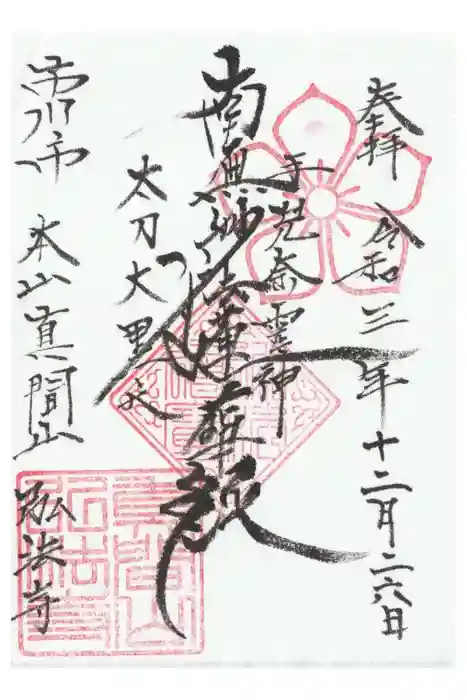 奉拝 令和三年十二月二六日
手児奈霊神
南無妙法蓮華経
太刀大黒天
市川市 本山真間山 弘法寺